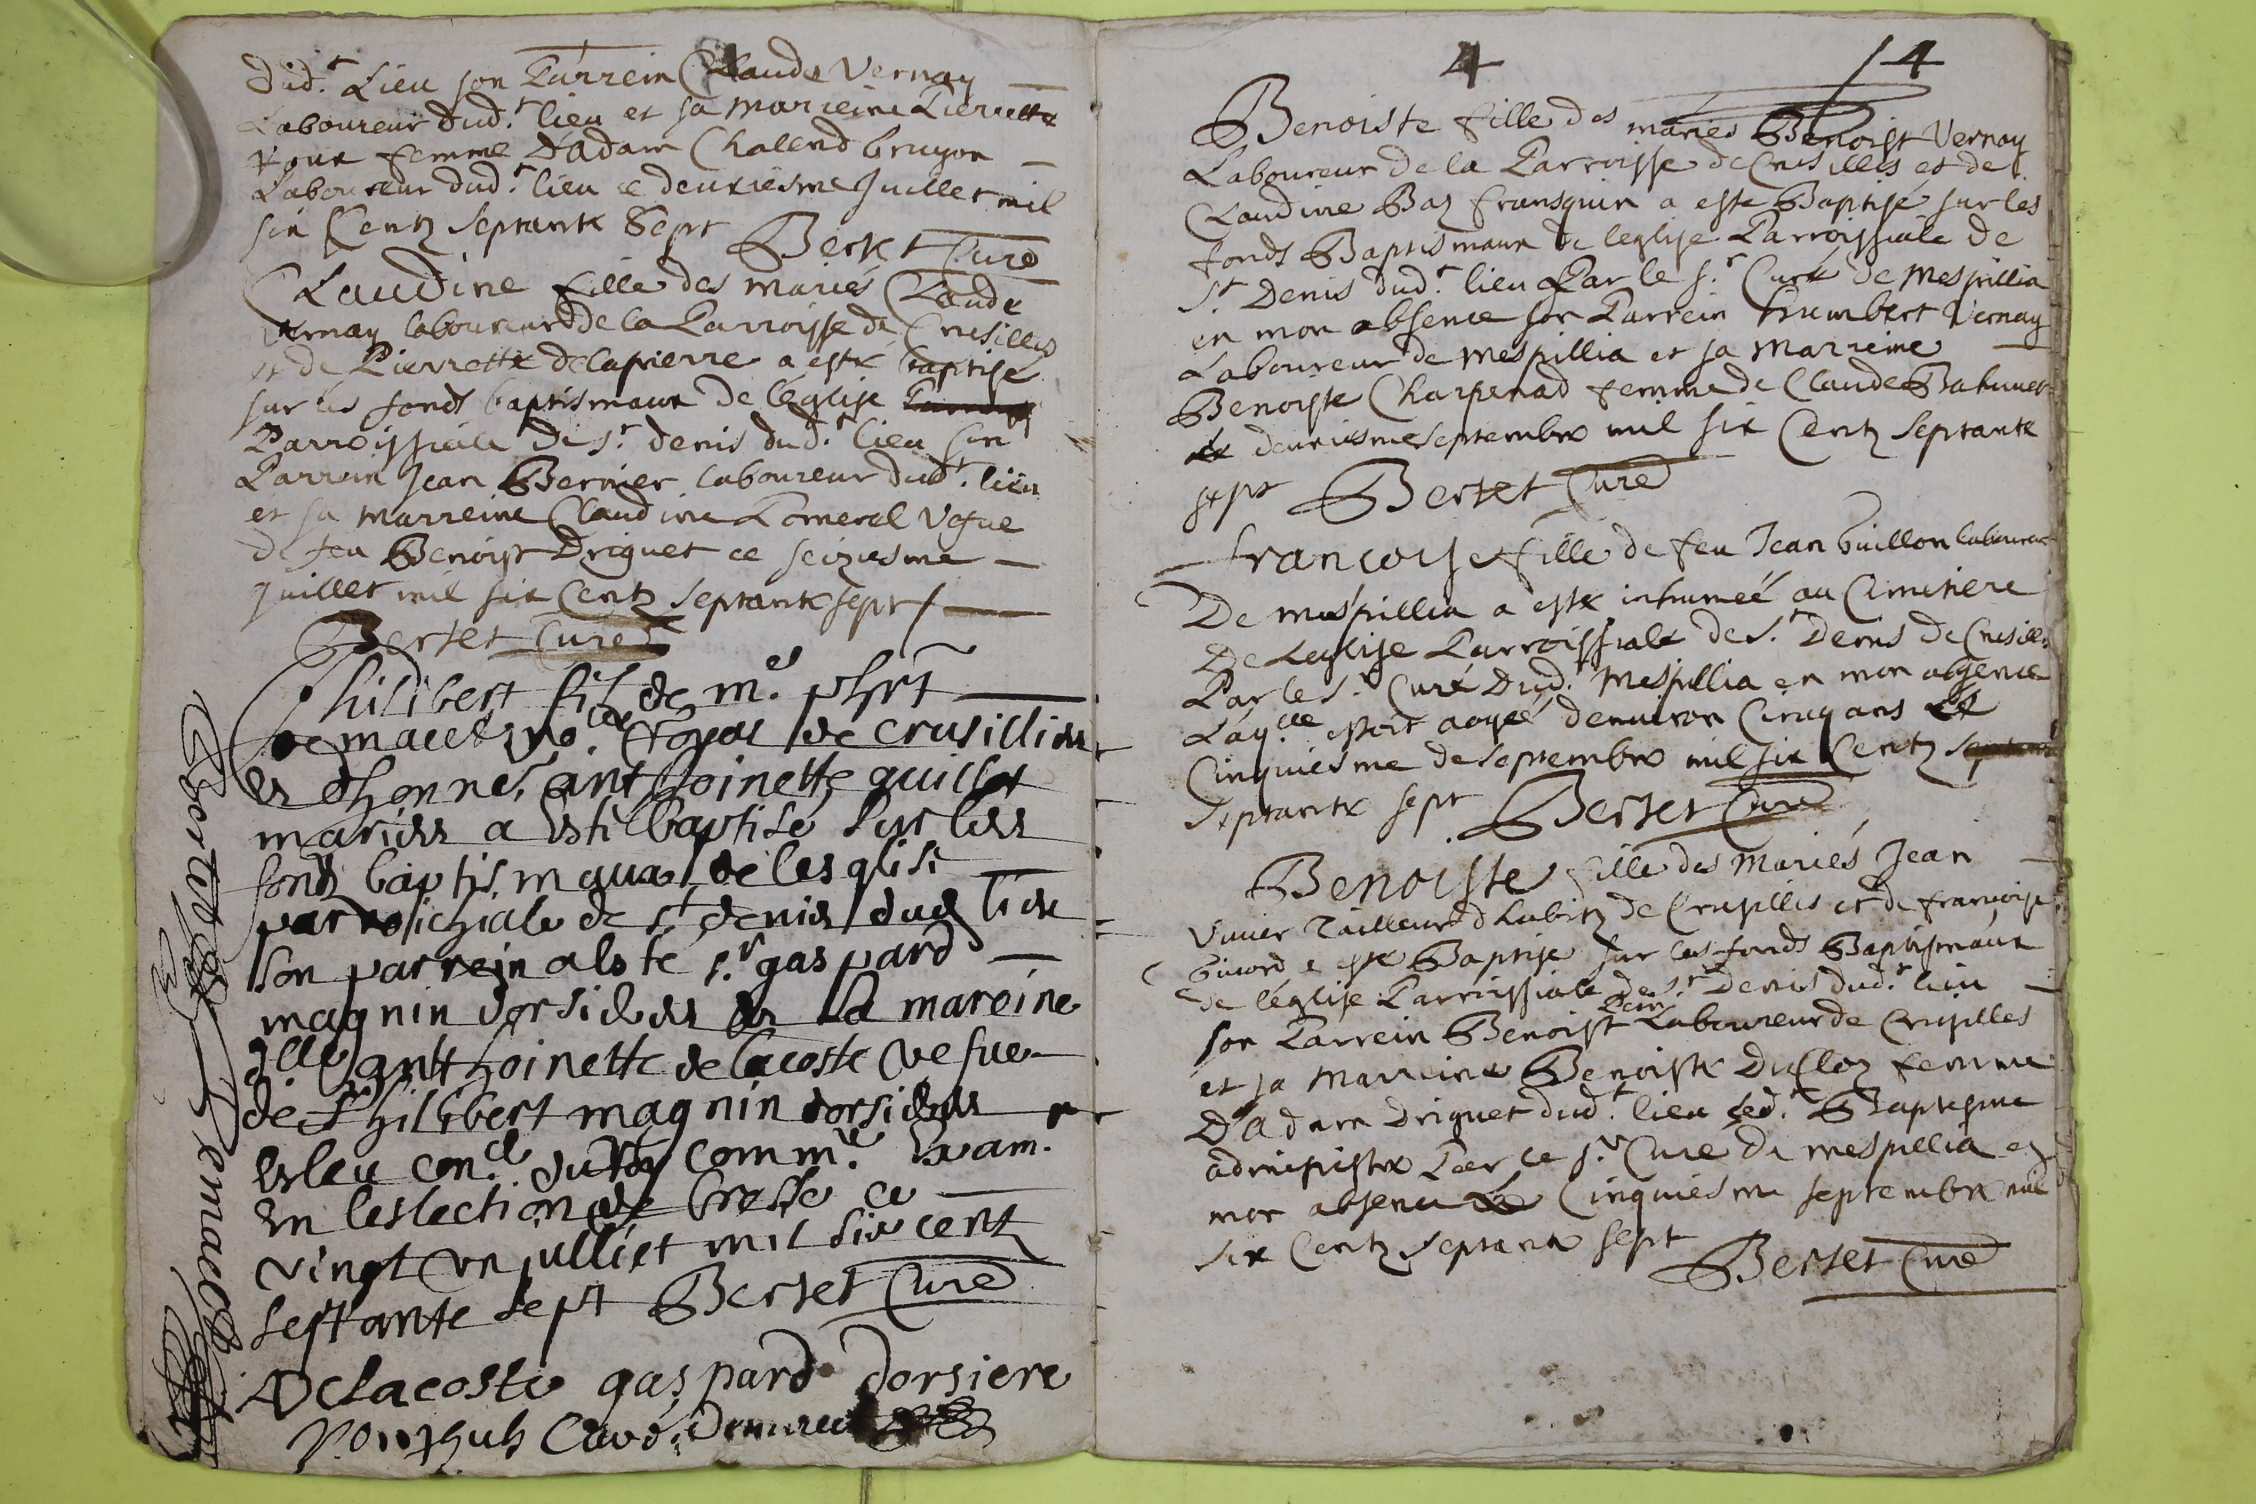 dud.t Lieu son Parrein Claude Vernay
Laboureur dud.t lieu et sa Marreine Pierrette
femme d'Adam Chalend bruyon
Laboureur dud.t lieu ce deuxiesme Juillet mil
six Centz septante Sept Bertet Curé
Claudine fille des mariés Claude
Vernay laboureur de la Parroisse de Crusilles
et de Pierrette delapierre a esté baptisé
sur les fonds baptismaux de l'église
Parroissiale de St. denis dud.t lieu son
Parrein Jean Bernier laboureur dud.t lieu
et sa Marreine Claudine Pomerel Vefue
de feu Benoist Driguet ce seiziesme
Juillet mil six Centz septante sept
Bertet Curé
Philibert filz de m.e
de macet de crusillies
et d'honne. antthoinette guillot
maries a esté baptisé sur les
fondz baptismaux de lesglise
parroichiale de st denis dud lieu
son parrein a esté s.r gaspard
magnin dorsieres et la mareine
d.lle antthoinette de lacoste vefue
de Philibert magnin dorsieres
esleu con.el du Roy comm.re exam.r
en leslection de bresse ce
vingt un julliet mil six centz
septante sept Bertet Curé
Delacoste gaspard dorsiere
Demacet
Bertet Demacet
4 14
Benoiste fille des mariés Benoist Vernay
Laboureur de la Parroisse de Crusilles et de
Claudine Baz fransquin a esté Baptisé sur les
fonds Baptismaux de l'eglise Parroissiale de
St. Denis dud.t lieu Par le s.r Curé de Mespillia
en mon absence son Parrein humbert Vernay
Laboureur de Mespillia et sa Marreine
Benoiste Charpenad femme de Claude
deuxiesme septembre mil six Centz septante
sept Bertet Curé
francoise fille de feu Jean Guillon laboureur
De mespillia a esté inhumeé au Cimetiere
De L'eglise Parroissiale de St. Denis de Crusilles
Par le s.r Curé Dud.t Mespillia en mon absence
Laq.lle estoit aagée denuiron Cinq ans Le
Cinquiesme de septembre mil six Centz septante
septante sept Bertet Curé
Benoiste fille des Mariés Jean
Viuier Tailleur d'habitz de Crusilles et de francoise
a esté Baptisé sur les fonds Baptismaux
de l'église Parroissiale de St. Denis dud.t lieu
son Parrein Benoist Laboureur de Crusilles
et sa Marreine Benoiste Duclos femme
D'Adam Driguet dud.t lieu led.t Baptesme
administré Par le s.r Curé de mespillia en
mon absence Le Cinquiesme septembre mil
six Centz septante sept
Bertet Curé